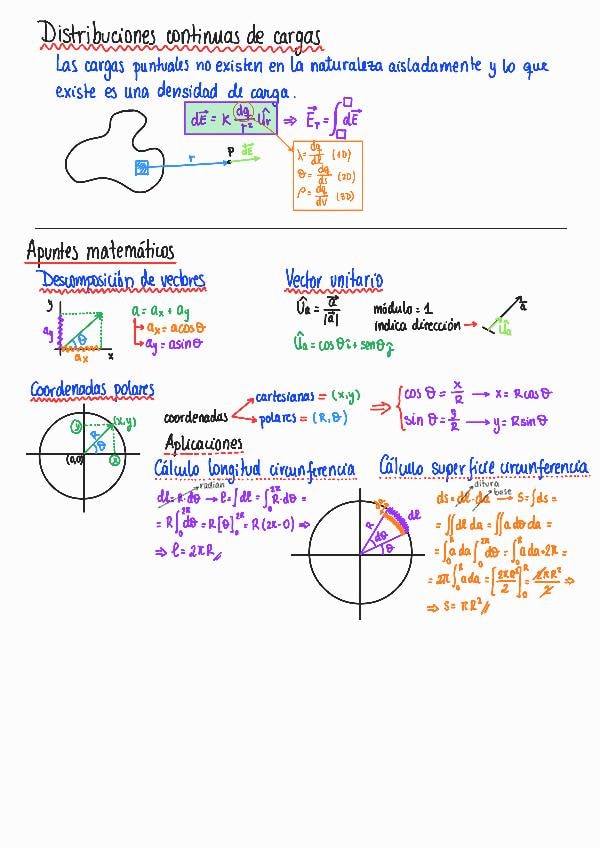 Distribuciones continuas de cargas
Las cargas puntuales no existen en la naturaleza aisladamente y lo que
existe es una densidad de carga.
dE⃗ = K dq/r² Ûr ⇒ E⃗T = ∫□□ dE⃗
r P dE⃗
λ = dq/dl (1D)
θ = dq/ds (2D)
ρ = dq/dV (3D)
Apuntes matemáticos
Descomposición de vectores
y ay θ ax x
a = ax + ay
ax = a cosθ
ay = a sinθ
Vector unitario
Ûa = a⃗/|a⃗|
módulo = 1
indica dirección
a⃗ Ûa
Ûa = cosθ î + senθ ĵ
Coordenadas polares
y R (x,y) θ (0,0) x
coordenadas
cartesianas = (x,y)
polares = (R,θ)
⇒ { cos θ = x/R → x = R cosθ
sin θ = y/R → y = R sinθ
Aplicaciones
Cálculo longitud circunferencia
radian
dl = R·dθ → l = ∫dl = ∫₀^2π R·dθ =
= R∫₀^2π dθ = R[θ]₀^2π = R(2π-0) ⇒
⇒ l = 2πR //
R dθ θ dl
Cálculo superficie circunferencia
altura
base
ds = dl·da → S = ∫ds =
= ∬dl da = ∬a dθ da =
= ∫₀^R a da ∫₀^2π dθ = ∫₀^R a da·2π =
= 2π∫₀^R a da = [2πR²/2]₀^R = 2πR²/2 ⇒
⇒ S = πR² //